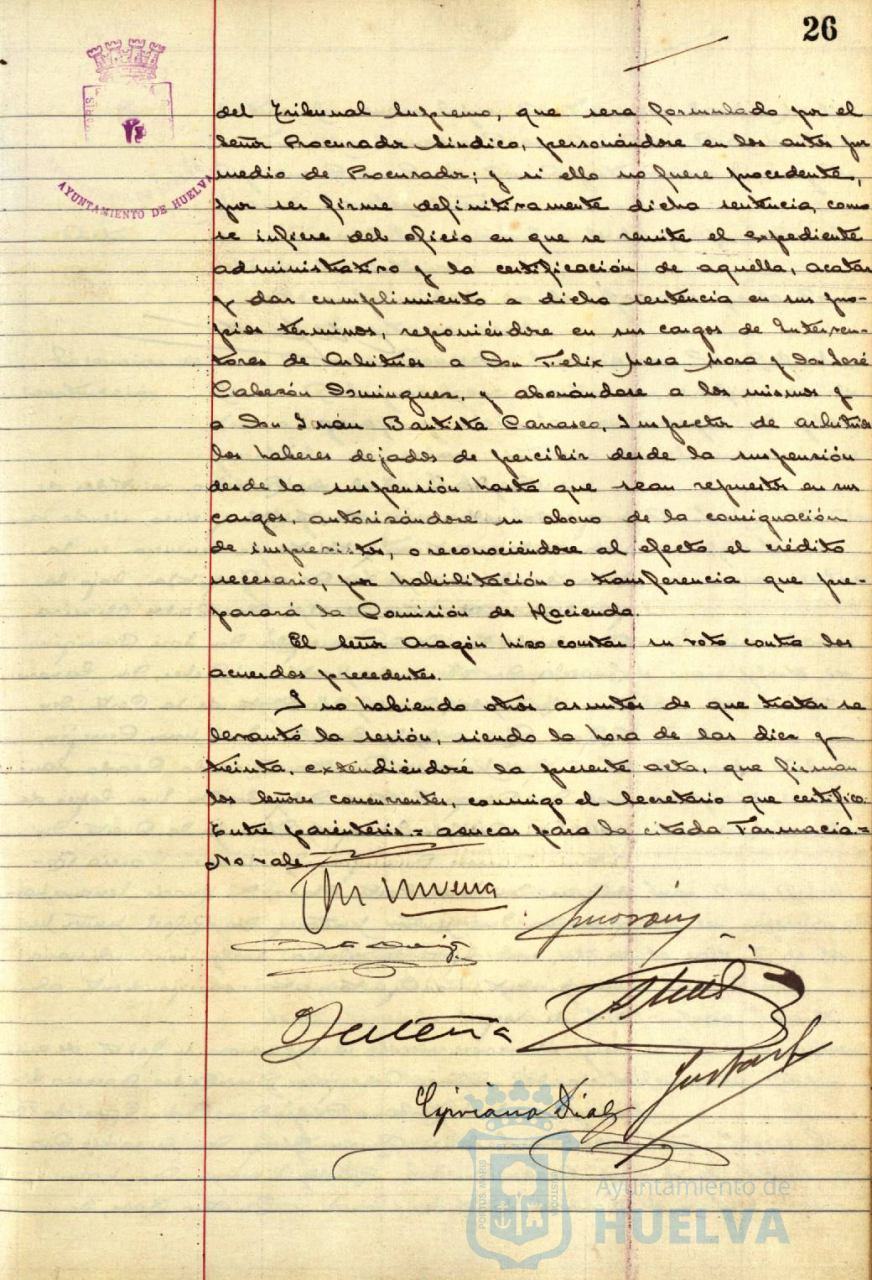 26
AYUNTAMIENTO DE HUELVA
del Tribunal Supremo, que sera formulado por el
Señor Procurador Sindico, personándose en los autos por
medio de Procurador; y si ello no fuere procedente,
por ser firme definitivamente dicha sentencia, como
se infiere del oficio en que se remite el expediente
administrativo y la certificación de aquella, acatar
y dar cumplimiento a dicha sentencia en sus pro-
pios terminos, reponiéndose en sus cargos de Interven-
tores de Arbitrios a Don Felix Mesa Mora y Don José
Cabezón Dominguez, y abonándose a los mismos y
a Don Juán Bautista Carrasco, Inspector de arbitrios
los haberes dejados de percibir desde la suspensión
desde la suspensión hasta que sean repuestos en sus
cargos, autorizándose su abono de la consignación
de imprevistos, o reconociéndose al efecto el crédito
necesario, por habilitación o transferencia que pre-
parará la Comisión de Hacienda.
El Señor Aragón hizo constar su voto contra los
acuerdos precedentes.
Y no habiendo otros asuntos de que tratar se
levantó la sesión, siendo la hora de las diez y
treinta, extendiéndose la presente acta, que firman
los Señores concurrentes, conmigo el Secretario que certifico.
Entre parentesis = azucar para la citada Farmacia =
No vale
Cipriano Diaz
PORTUS MARIS
Ayuntamiento de
HUELVA